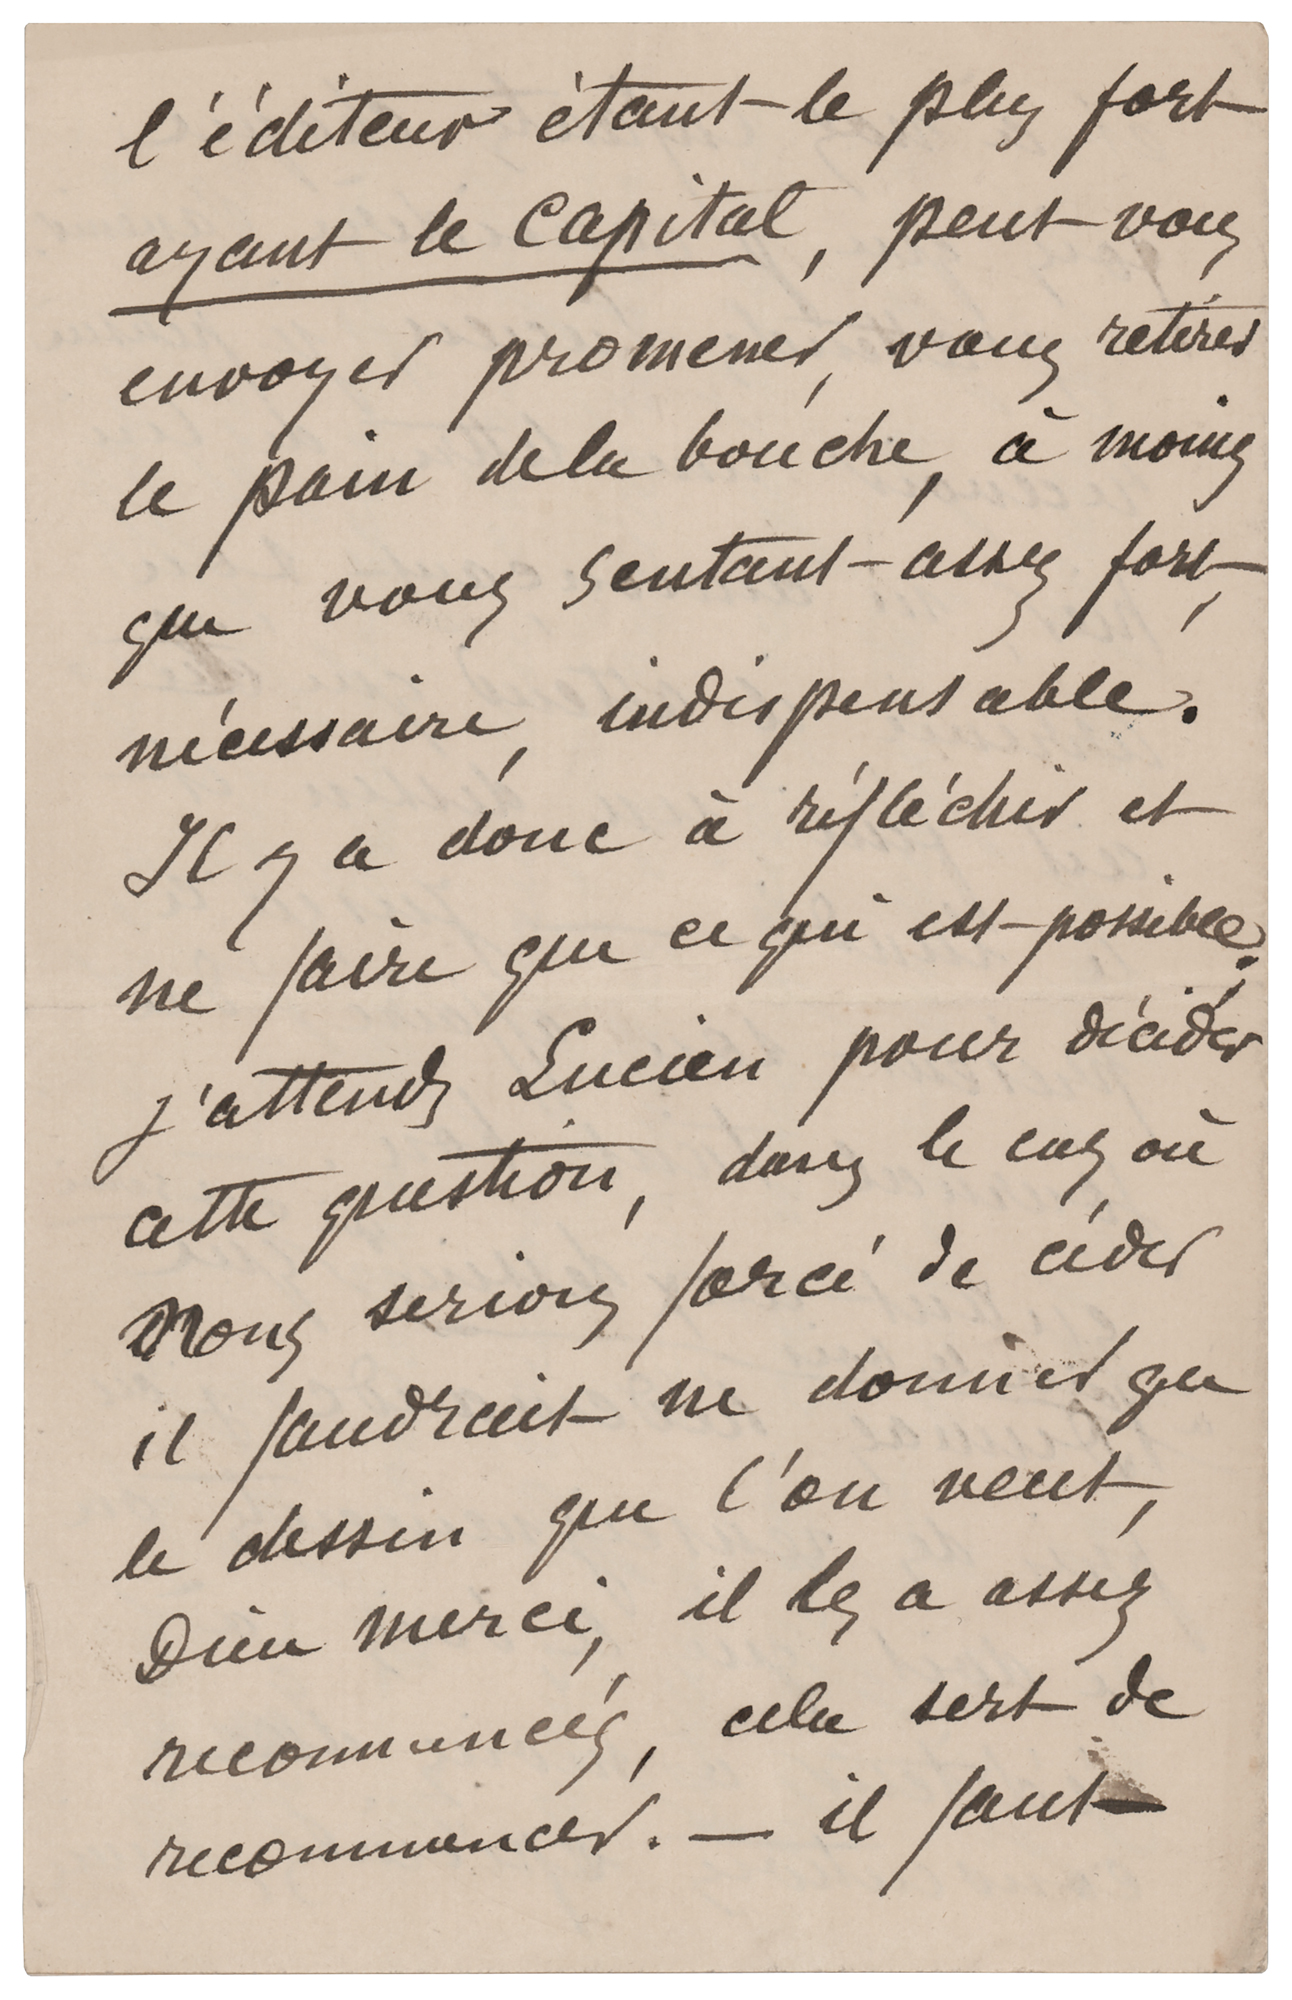 l'éditeur étant le plus fort
ayant le Capital, peut vous
envoyer promener, vous retirer
le pain de la bouche, à moins
que vous sentant assez fort,
nécessaire, indispensable.
Il y a donc à réfléchir et
ne faire que ce qui est possible.
j'attends Lucien pour décider
cette question, dans le cas où
Nous serions forcé de céder
il faudrait ne donner que
le dessin que l'on veut,
Dieu merci, il les a assez
recommencés, cela sert de
recommencer. — il faut